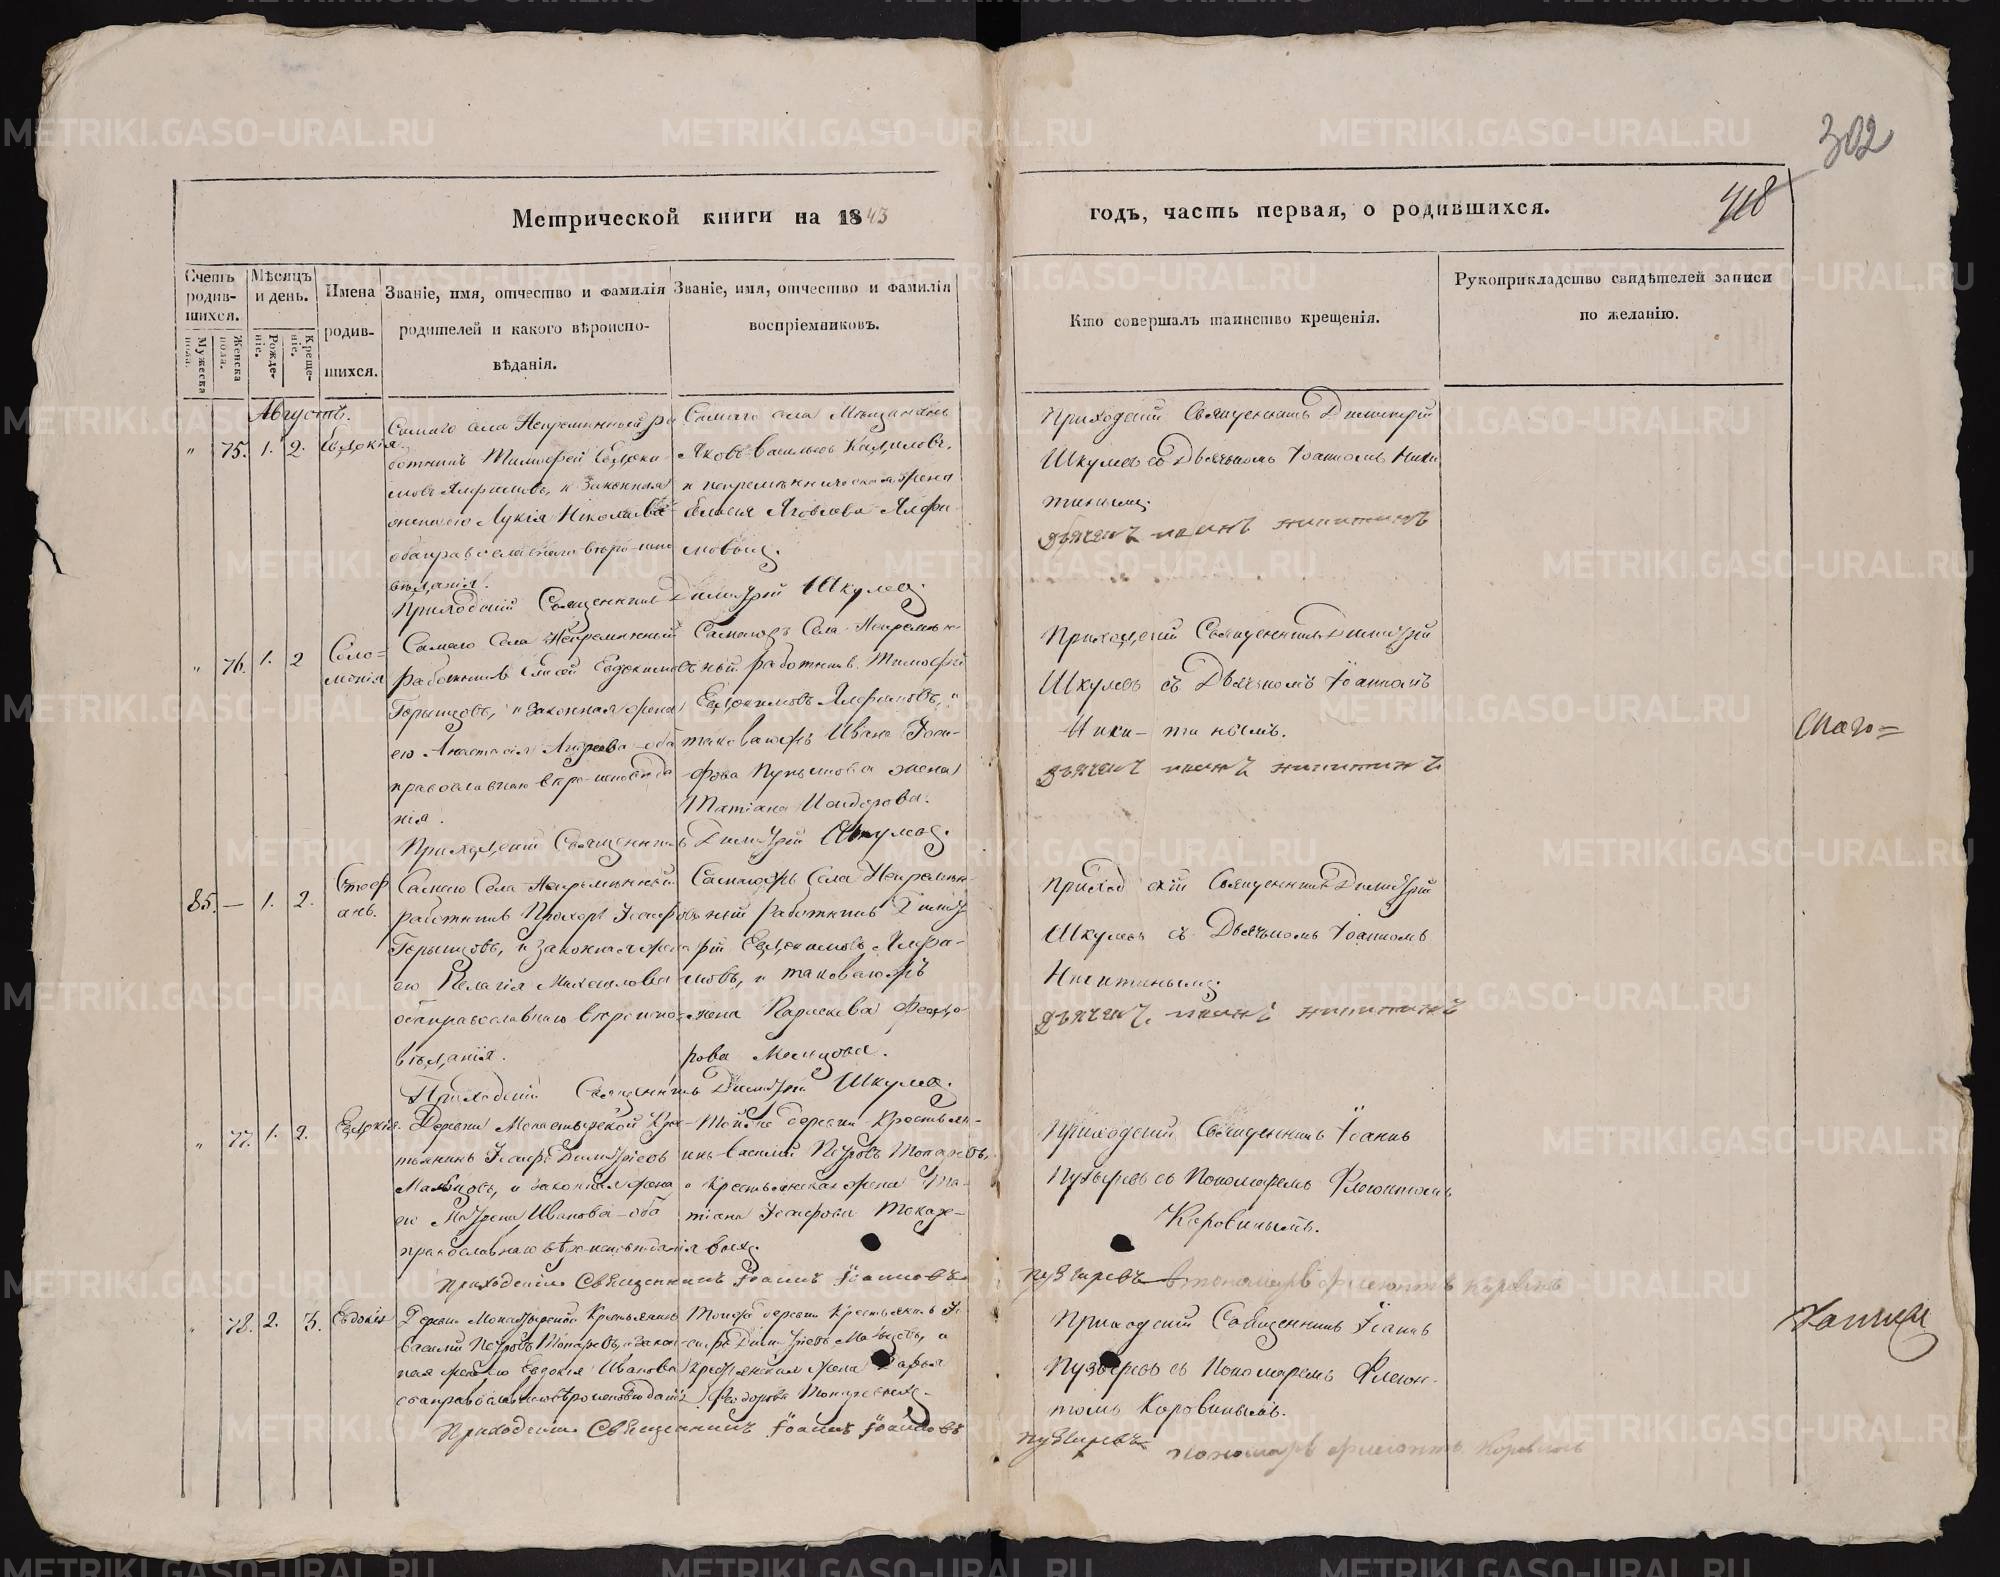 302
418
Метрической книги на 1843
годъ, часть первая, о родившихся.
Счетъ родив-шихся.
Мужеска пола.
Женска пола.
Мѣсяцъ и день.
Рожде-ніе.
Креще-ніе.
Имена родив-шихся.
Званіе, имя, отчество и фамилія
родителей и какого вѣроиспо-
вѣданія.
Званіе, имя, отчество и фамилія
воспріемниковъ.
Кто совершалъ таинство крещенія.
Рукоприкладство свидѣтелей записи
по желанію.
Августъ.
" 75. 1. 2. Евдокія.
Самаго села Непремѣнный ра
ботникъ Тимофей Евдоки-
мовъ и законная
жена его Лукія Николаева
оба православнаго вѣро-испо
вѣданія.
Самаго села
Яковъ Васильевъ
и непремѣнническая жена
Яковлева
Приходскій Священникъ Димитрій
Шкулевъ съ Дьячкомъ Іоанномъ Ники
тинымъ.
дьячекъ иванъ никитинъ
Приходскій Священникъ Димитрій Шкулевъ.
" 76. 1. 2 Соло=
монія
Самаго Села Непремѣнный
работникъ Елисей Евдокимовъ
и законная жена
его Анастасія Андреева оба
православнаго вѣро-исповѣда
нія.
Самагожъ Села Непремѣн-
ный работникъ Тимофей
Евдокимовъ
таковагожъ Ивана
жена
Татіана Исидорова.
Приходскій Священникъ Димитрій
Шкулевъ съ Дьячкомъ Іоанномъ
Ники-тинымъ.
дьячекъ иванъ никитинъ
Приходскій Священникъ Димитрій Шкулевъ.
85. — 1. 2. Стеф
анъ.
Самаго Села Непремѣнный
работникъ Прохоръ
и законная жена
его Пелагія Михайлова
оба православнаго вѣроиспо-
вѣданія.
Самагожъ Села Непремѣн-
ный работникъ Димит
рій Евдокимовъ
и таковагожъ
жена Параскева Феодо
рова
Приходскій Священникъ Димитрій
Шкулевъ съ Дьячкомъ Іоанномъ
Никитинымъ.
дьячекъ иванъ никитинъ
Приходскій Священникъ Димитрій Шкулевъ.
" 77. 1. 2. Евдокія.
Деревни Монастырской Крес-
тьянинъ Димитріевъ
Мальцовъ, и законная жена
его Матрена Иванова оба
православнаго вѣроисповѣданія
Тойже деревни Крестьян-
инъ Василій Петровъ
и Крестьянская жена Та-
тіана
Приходскій Священникъ Іоаннъ
Пузыревъ съ Пономаремъ Флегонтомъ
Коровинымъ.
Приходскій Священникъ Іоаннъ Іоанновъ
Пузыревъ пономарь флегонтъ Коровинъ
" 78. 2. 3. Евдокія
Деревни Монастырской Крестьянинъ
Василій Петровъ и закон
ная жена его Евдокія Иванова
оба православнаго вѣроисповѣданія
Тойже деревни Крестьянинъ
Димитріевъ Мальцовъ, и
Крестьянская жена Дарья
Федорова
Приходскій Священникъ Іоаннъ
Пузыревъ съ Пономаремъ Флегон-
томъ Коровинымъ.
Приходскій Священникъ Іоаннъ Іоанновъ
Пузыревъ пономарь флегонтъ Коровинъ
METRIKI.GASO-URAL.RU